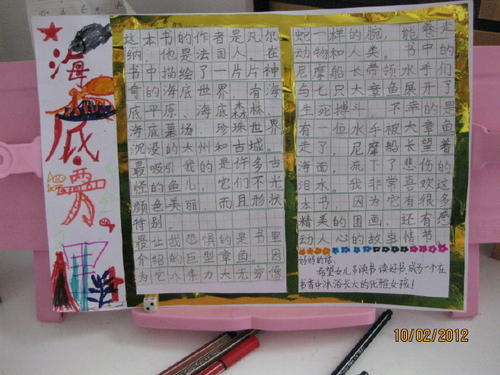 海底雾
这本书的作者是凡尔
纳，他是法国人。在
书中描绘了一片片神
奇的海底世界，有海
底平原、海底森林、
海底墓场、珍珠世界
沉没的大州和古城。
最吸引我的是许多古
怪的鱼儿，它们不光
颜色美丽，而且形状
特别。
最让我恐惧的是书里
介绍的巨型章鱼。因
为它八条力大无穷像
蛇一样的腕，能卷走
动物和人类。书中的
尼摩船长带领水手们
与七只大章鱼展开了
生死搏，不幸的是
有一位水手被大章鱼
走了，尼摩船长望着
海面，流下了悲伤的
泪水。我非常喜欢这
本书，因为它有很多
精美的图画，还有感
动人心的故事情节。
妈妈的话：
希望女儿多读书 读好书 成为一个在
书香中沐浴长大的优雅女孩！
10/02/2012